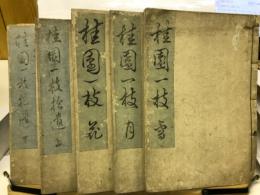 桂園一枝 雪
桂園一枝 月
桂園一枝 花
桂園一枝拾遺 上
桂園一枝拾遺 下